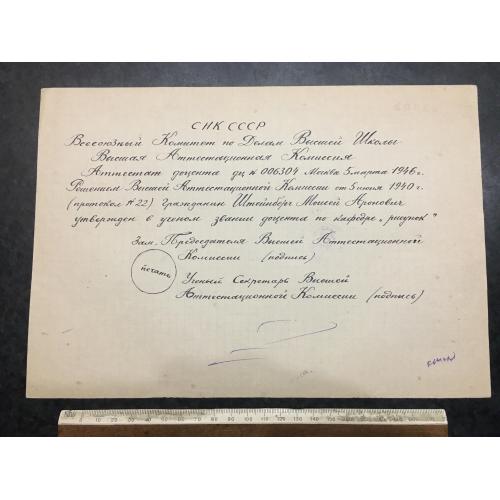 СНК СССР
Всесоюзный Комитет по Делам Высшей Школы
Высшая Аттестационная Комиссия
Аттестат доцента дц № 006304 Москва 5 марта 1946 г.
Решением Высшей Аттестационной Комиссии от 5 июня 1940 г.
(протокол № 22) Гражданин Штейнберг Моисей Аронович
утвержден в ученом звании доцента по кафедре „рисунок"
Зам. Председателя Высшей Аттестационной
Комиссии (подпись)
печать
Ученый Секретарь Высшей
Аттестационной Комиссии (подпись)